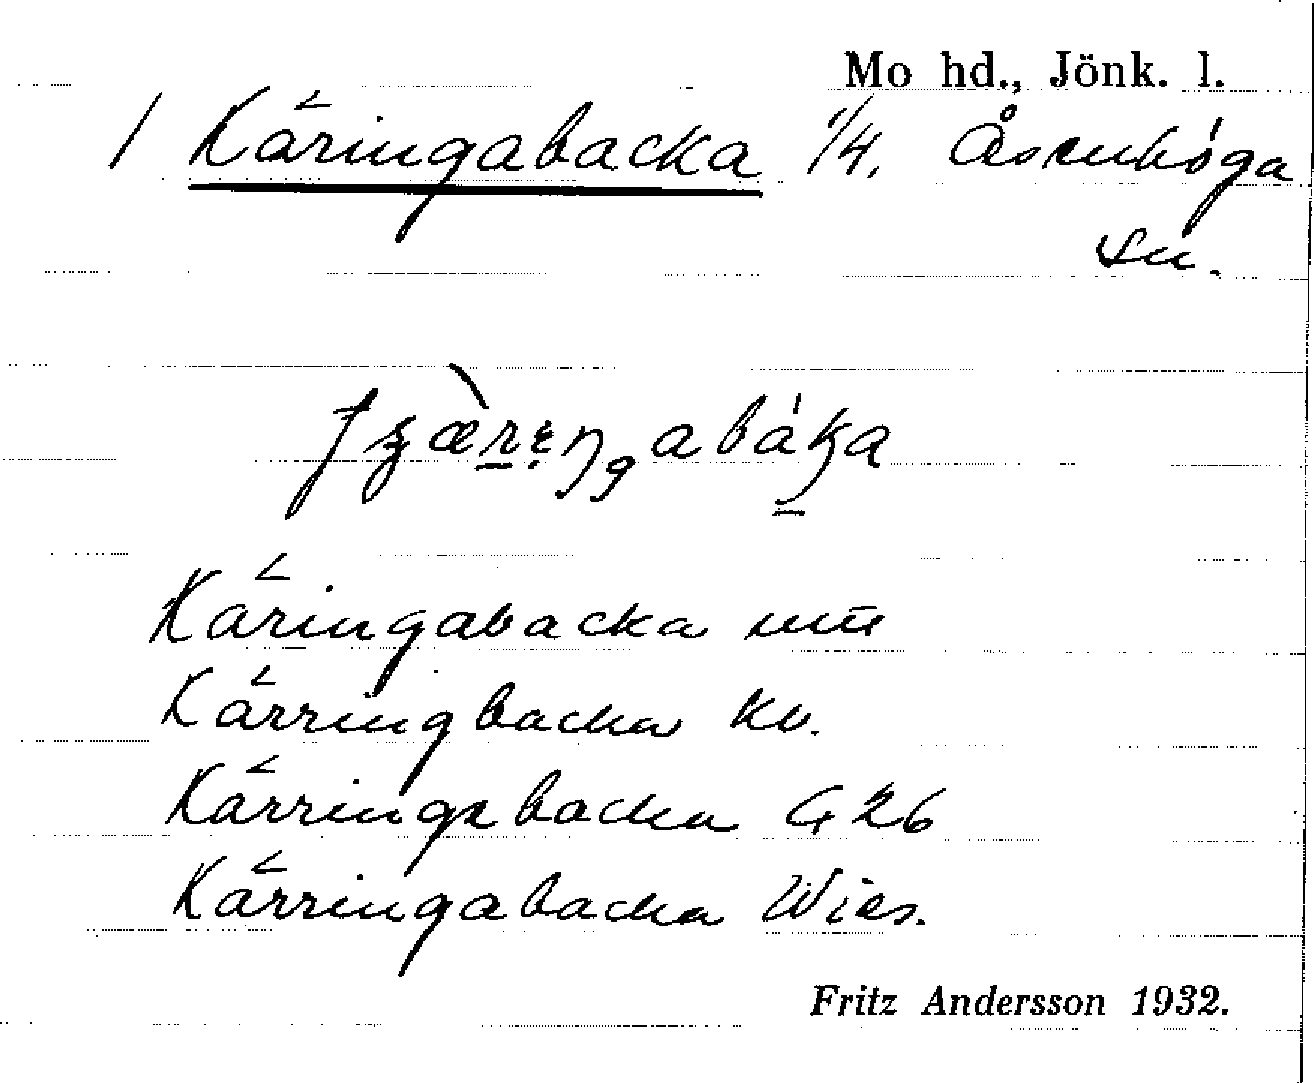 Mo hd., Jönk. l.
1 Käringabacka 1/4. Åsenhöga
sn.
Käringabacka
Kärringbacka kv.
Kärringebacka G 26
Kärringabacka Wies.
Fritz Andersson 1932.